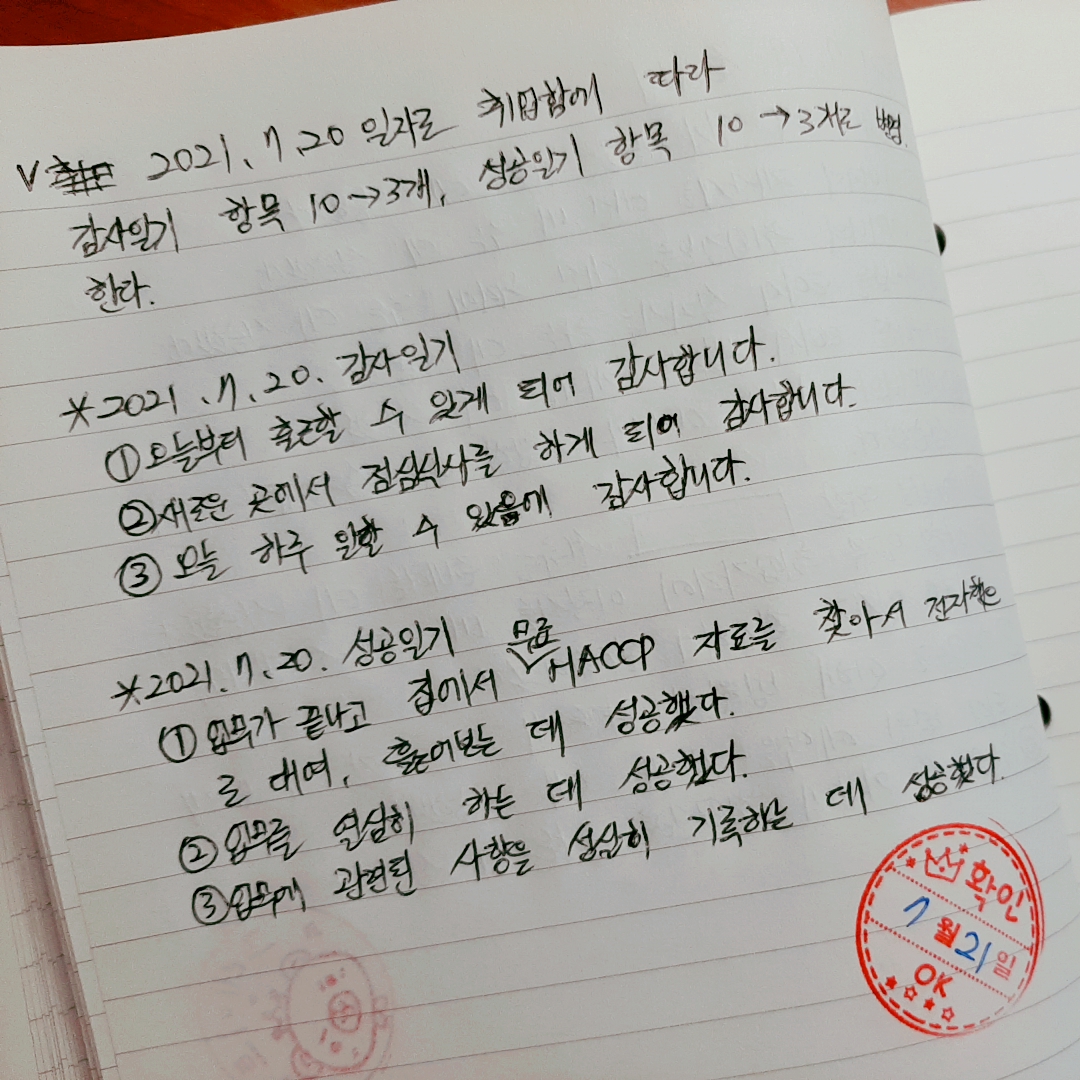 V 2021. 7. 20 일자로 취업함에 따라
감사일기 항목 10→3개, 성공일기 항목 10→3개로 변경
한다.
*2021. 7. 20. 감사일기
① 오늘부터 출근할 수 있게 되어 감사합니다.
② 새로운 곳에서 점심식사를 하게 되어 감사합니다.
③ 오늘 하루 일할 수 있음에 감사합니다.
*2021. 7. 20. 성공일기
① 업무가 끝나고 집에서 무료 HACCP 자료를 찾아서 전자책으
로 대여, 훑어보는 데 성공했다.
② 업무를 열심히 하는 데 성공했다.
③ 업무에 관련된 사항을 성실히 기록하는 데 성공했다.
확인
7월 21일
OK